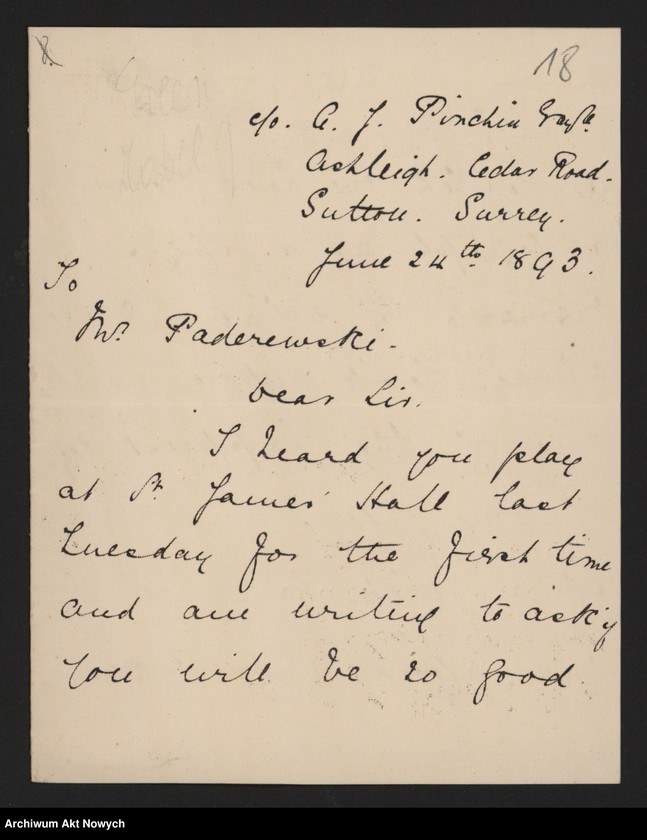 8.
18
c/o. A. J. Pinchin Esqre.
Ashleigh. Cedar Road.
Sutton. Surrey.
June 24th 1893.
To
Mr. Paderewski.
Dear Sir.
I heard you play
at St. James' Hall last
Tuesday for the first time
and am writing to ask if
you will be so good
Archiwum Akt Nowych